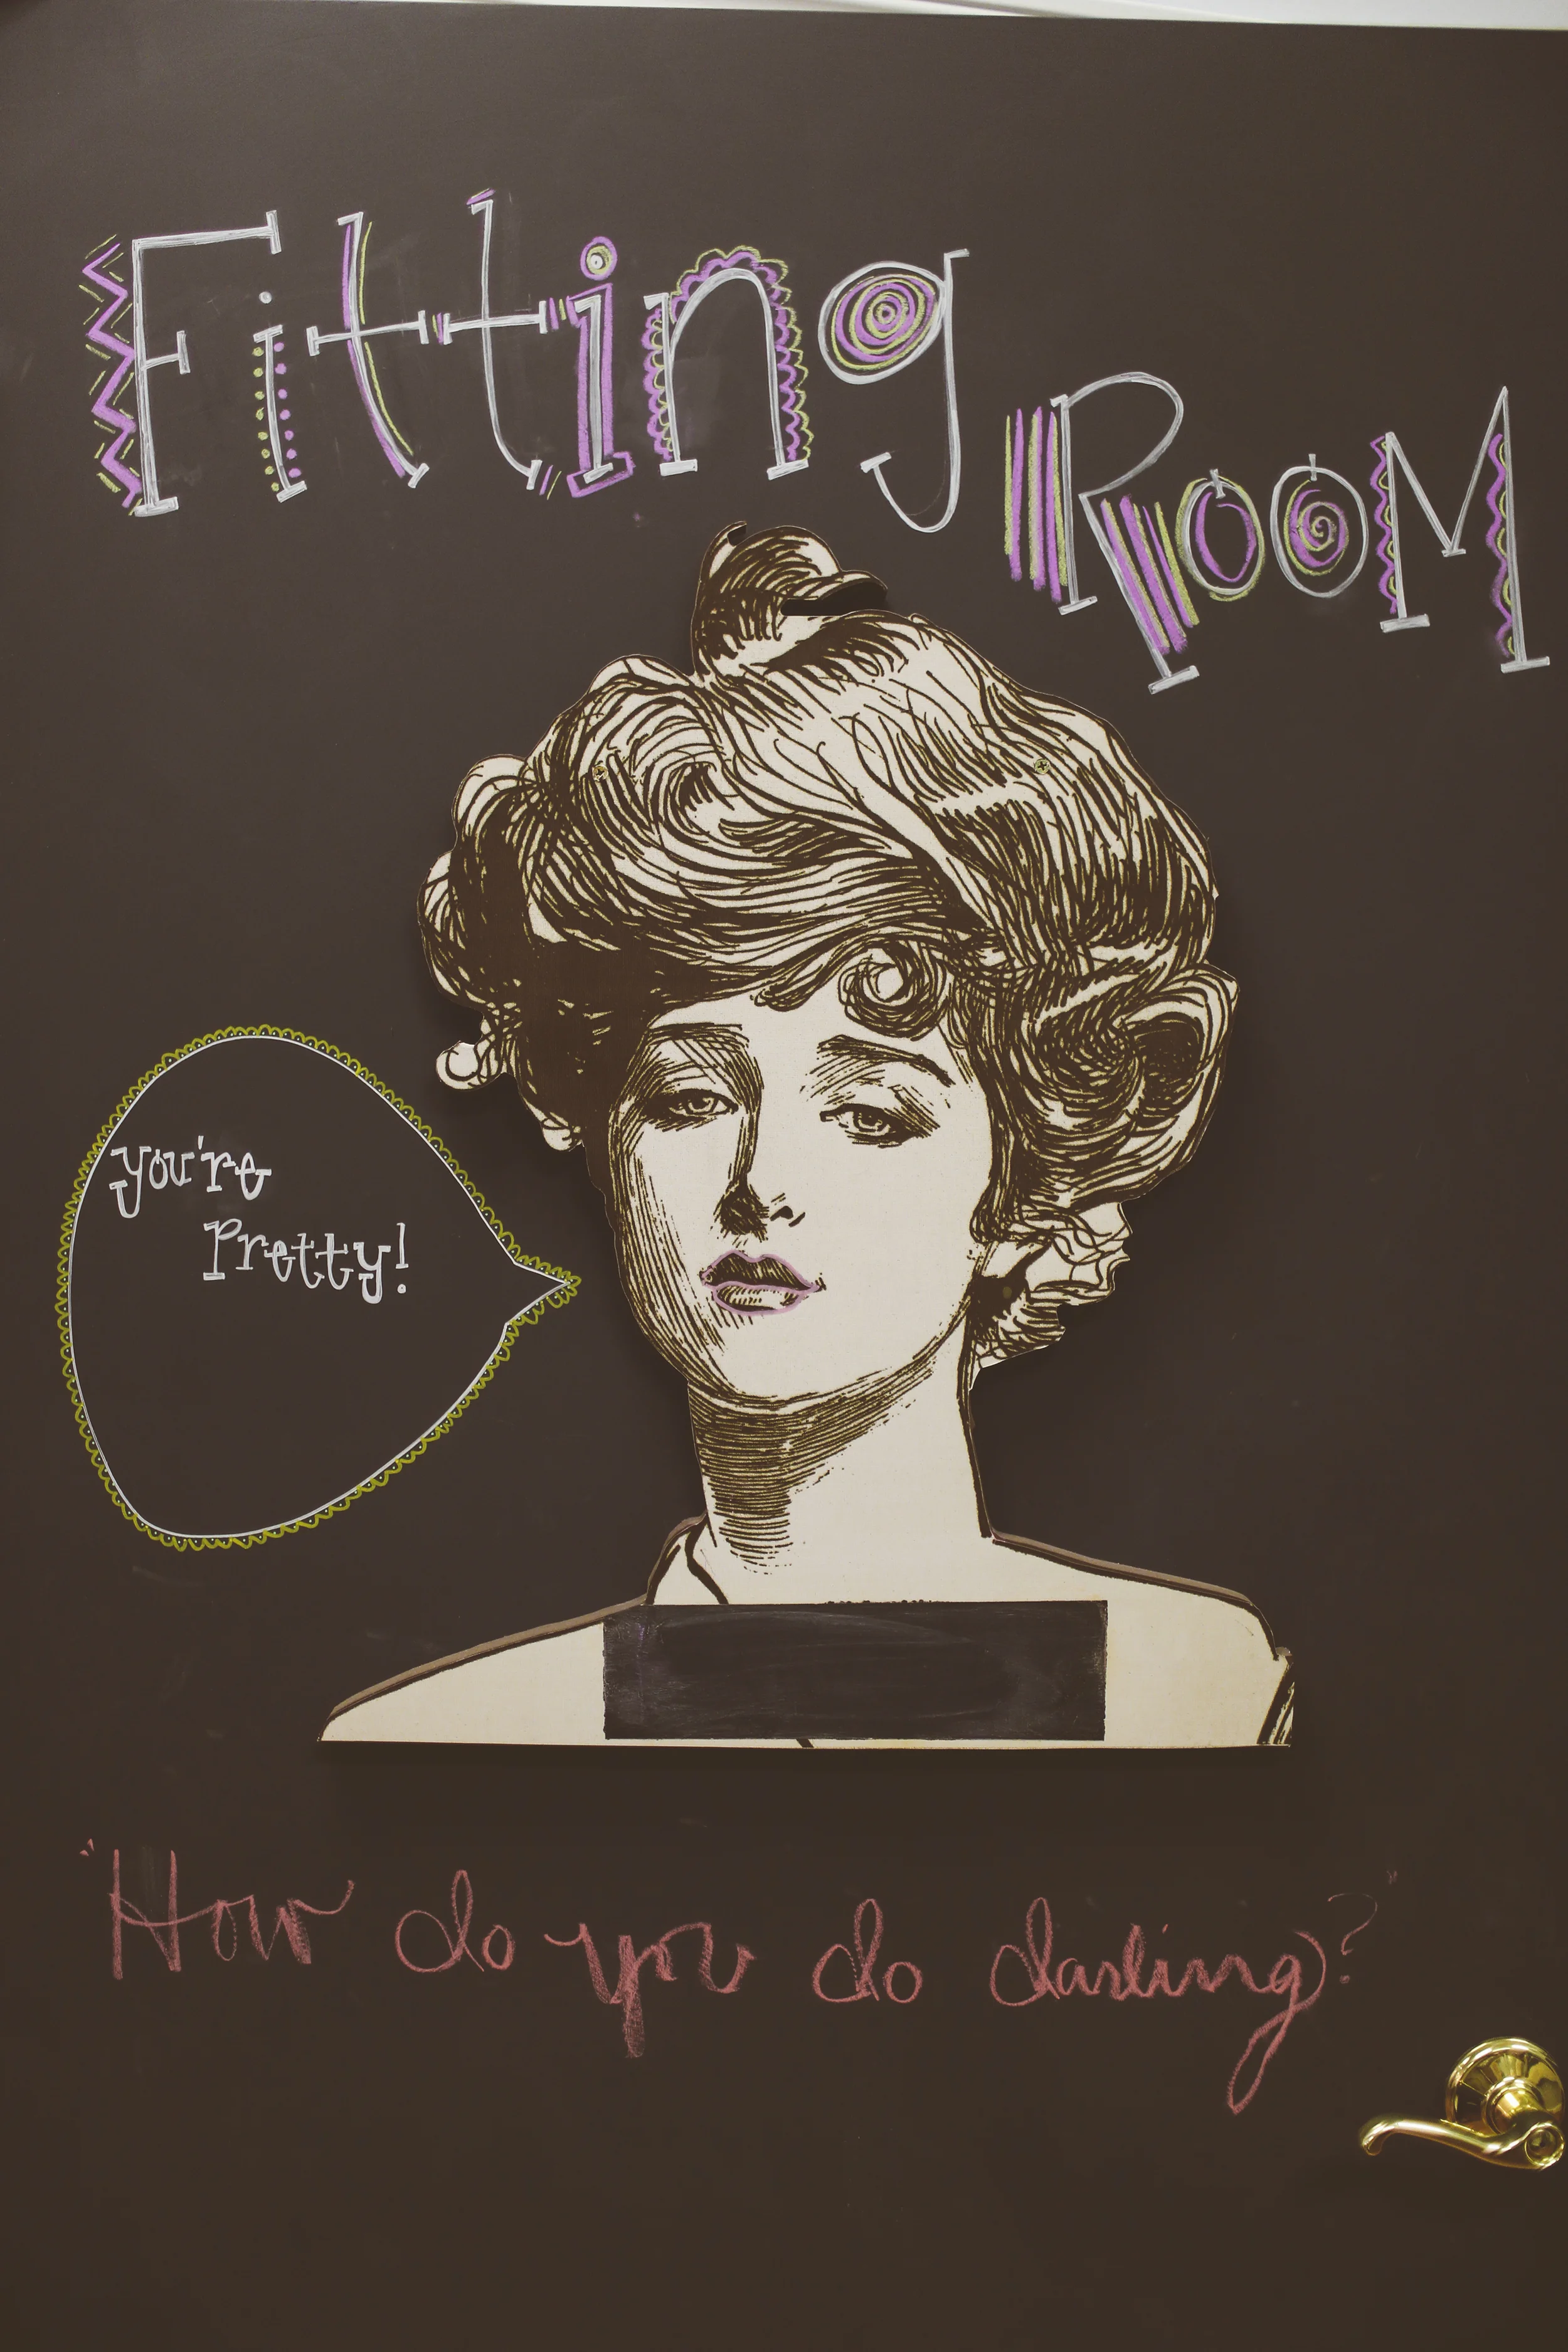 Fitting
Room
you're
Pretty!
"How do you do darling?"